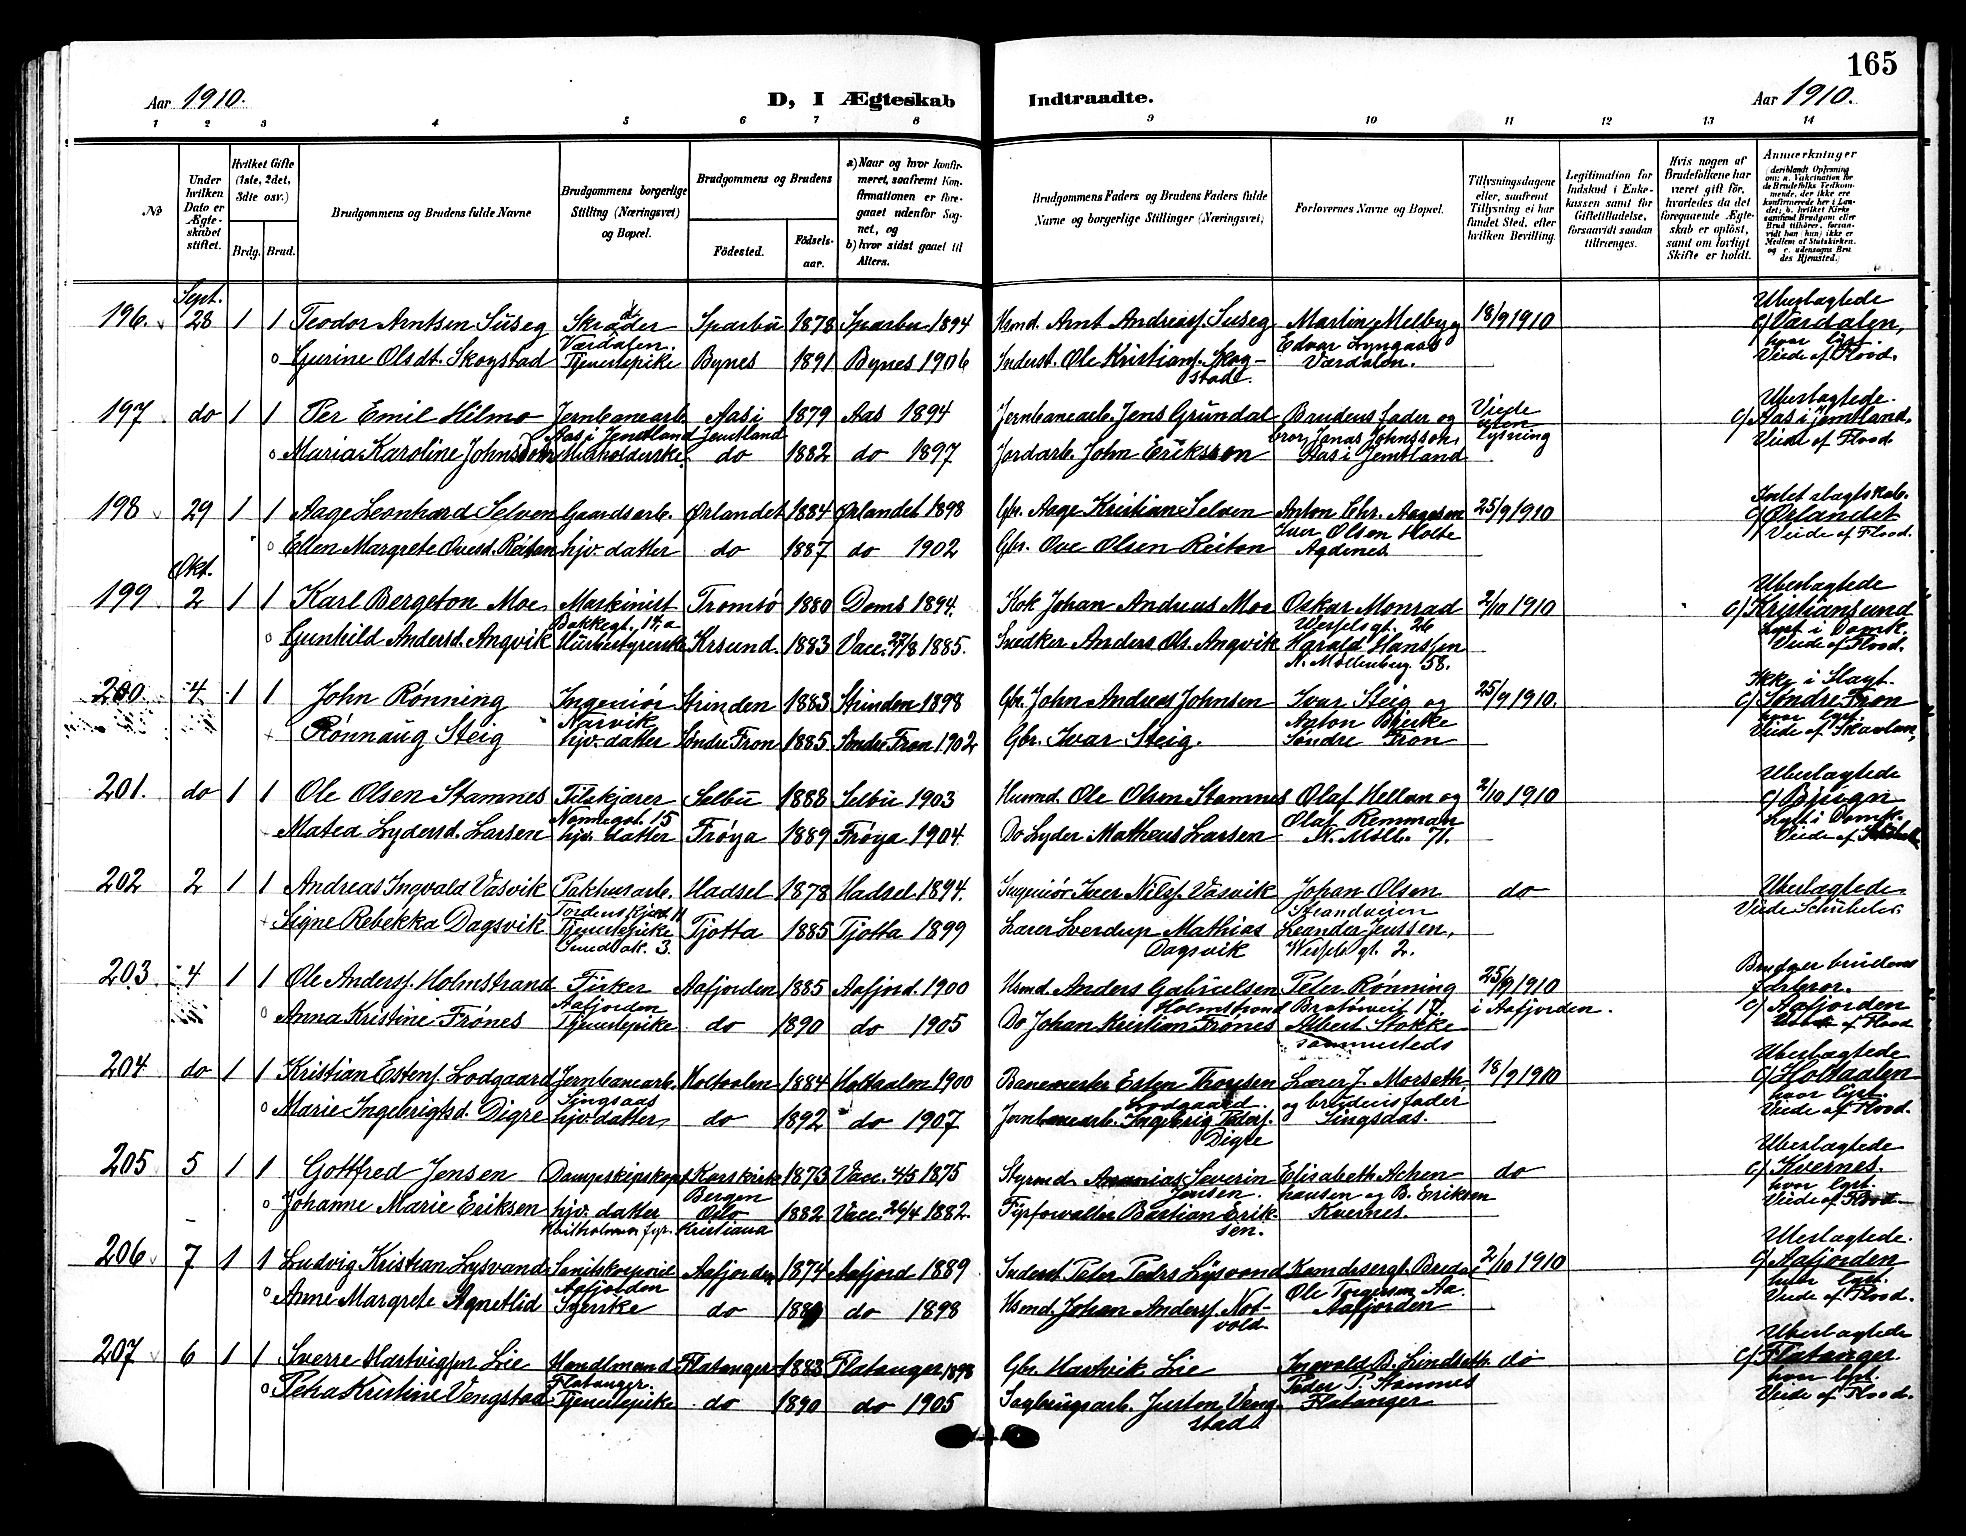 165
Aar 1910.
D, I Ægteskab Indtraadte.
Aar 1910.
1 2 3 4 5 6 7 8 9 10 11 12 13 14
No
Under hvilken Dato er Ægteskabet stiftet.
Hvilket Gifte (1ste, 2det, 3die osv.)
Brdg. Brud.
Brudgommens og Brudens fulde Navne
Brudgommens borgerlige Stilling (Næringsvei) og Bopæl.
Brudgommens og Brudens
Födested. Födselsaar.
a) Naar og hvor konfirmeret, saafremt Konfirmationen er foregaaet udenfor Sognet, og
b) hvor sidst gaaet til Alters.
Brudgommens Faders og Brudens Faders fulde Navne og borgerlige Stillinger (Næringsvei)
Forlovernes Navne og Bopæl.
Tillysningsdagene eller, saafremt Tillysning ei har fundet Sted, efter hvilken Bevilling.
Legitimation for Indskud i Enkekassen samt for Giftetilladelse, forsaavidt saadan tiltrænges.
Hvis nogen af Brudefolkene har været gift før, hvorledes da det foregaaende Ægteskab er opløst, samt om lovligt Skifte er holdt.
Anmærkninger
Sept.
196. 28 1 1 Teodor Arntsen Suseg Skræder Sparbu 1878 Sparbu 1894 Hsmd. Arnt Andreasf. Suseg Martin Melby og 18/9 1910 Ubeslægtede
Værdalen. Edvar Lyngaas c/ Værdalen,
Gurine Olsdt. Skogstad Tjenestepike Bynes 1891 Bynes 1906 Inderst. Ole Kristianf. Skogstad. Værdalen. hvor lyst.
Viede af Flood.
197 do 1 1 Per Emil Hilmo Jernbanearb. Aas i 1879 Aas 1894 Jernbanearb. Jens Grundal Brudens fader og Viede Ubeslægtede.
Aas i Jemtland Jemtland bror Jonas Johnsson, uten lysning c/ Aas i Jemtland.
Maria Karoline Johnsson do 1882 do 1897 Jordarb. John Eriksson Aas i Jemtland Viede af Flood
198 29 1 1 Aage Leonhard Selven Gaardsarb. Ørlandet 1884 Ørlandet 1898 Gbr. Aage Kristian Selven Anton Chr. Aagesen 25/9 1910 Intet slagtskab.
Iver Olsen Holte c/ Ørlandet
Ellen Margrete Ovesd. Reitan hjv. datter do 1887 do 1902 Gbr. Ove Olsen Reitan Agdenes Viede af Flood.
Okt.
199 2 1 1 Karl Bergeton Moe Maskinist Tromsö 1880 Doms 1894. Kok Johan Andreas Moe Oskar Monrad 2/10 1910 Ubeslægtede
Bakkegt. 14 a Wesselsgt. 26 c/ Kristiansund
Gunhild Andersd. Angvik Husbestyrerske Krsund. 1883 Vacc. 27/8 1885. Snedker Anders Ols. Angvik Harald Hanssen Lyst i Domk.
N. Mollenberg 58. Viede af Flood.
200. 4 1 1 John Rønning Ingeniör Strinden 1883 Strinden 1898 Gbr. John Andreas Johnsen Ivar Steig og 25/9 1910. Ikke i Slagt.
Narvik Anton Bjerke c/ Søndre Fron
Rønnaug Steig hjv. datter Søndre Fron 1885 Søndre Fron 1902 Gbr. Ivar Steig. Søndre Fron hvor lyst.
Viede af Skavlan,
201. do 1 1 Ole Olsen Stamnes Filskjærer Selbu 1888 Selbu 1903 Husmd. Ole Olsen Stamnes Olaf Hellan og 2/10 1910 Ubeslægtede
Nonnegat. 15 Olaf Remman c/ Bjugn
Matea Lydersd. Larsen hjv. datter Frøya 1889 Frøya 1904. Do Lyder Matheus Larsen N. Möll. 71. Lyst i Domk.
202 2 1 1 Andreas Ingvald Vasvik Pakhusarb. Hadsel 1878 Hadsel 1894. Ingeniör Iver Nilsf. Vasvik Johan Olsen do Ubeslægtede
Tordenskjold 11 Strandveien Viede Schuheler.
Signe Rebekka Dagsvik Tjenestepike Tjotta 1885 Tjotta 1899 Lærer Sverdrup Mathias Leander Jenssen,
Dagsvik Wessels gt. 2.
203 4 1 1 Ole Andersf. Holmstrand Fisker Aafjorden 1885 Aafjord. 1900 Hsmd. Anders Gabrielsen Peter Rønning 25/9 1910 Brudgr brudens farbror.
Aafjorden Holmstrand Bratörveit 17. i Aafjorden. c/ Aafjorden
Anna Kristine Frönes Tjenestepike do 1890 do 1905 Do Johan Kristian Frönes Albert Stokke
sammesteds
204 do 1 1 Kristian Estenf. Lodgaard Jernbanearb. Holtaalen 1884 Holtaalen 1900 Banemester Esten Thomsen Lærer J. Morseth, 18/9 1910 Ubeslægtede
Singsaas Lodgaard. og brudens fader c/ Holtaalen
Marie Ingebrigtsd. Digre hjv. datter, do 1892 do 1907 Jernbanearb. Ingebrig Pedersf. Digre Singsaas. hvor lyst.
Viede af Flood.
205 5 1 1 Gottfred Jensen Korskirke 1873 Vacc. 4/5 1875 Styrmd. Ananias Severin Jensen. Elisabeth Achenhausen og B. Eriksen do Ubeslægtede
Bergen c/ Kvernes.
Johanne Marie Eriksen hjv. datter Oslo 1882 Vacc. 26/4 1882. Fyrforvalter Bastian Eriksen. Kvernes. hvor lyst.
Kristiana Viede af Flood
206 7 1 1 Ludvig Kristian Lysvand Sanitskorporal Aafjorden 1874 Aafjord 1889 Inderst Peter Peders Lysvand 2/10 1910 Ubeslægtede.
Aafjorden Ole Torgersen Aa. c/ Aafjorden
Anne Margrete Agnetlid Syerske do do 1898 Hsmd. Johan Andersf. Notvold. Aafjorden hvor lyst.
Viede af Flood.
207 6 1 1 Sverre Hartvigsen Lie Handlmand Flatanger 1883 Flatanger 1898 Gbr. Hartvik Lie Ingvald B. Lindseth do Ubeslægtede
Flatanger. Peder P. Hamnes c/ Flatanger.
Petra Kristine Vengstad Tjenestepike do 1890 do 1905 Sagbrugsarb. Juston Vengstad Flatanger hvor lyst.
Viede af Flood.